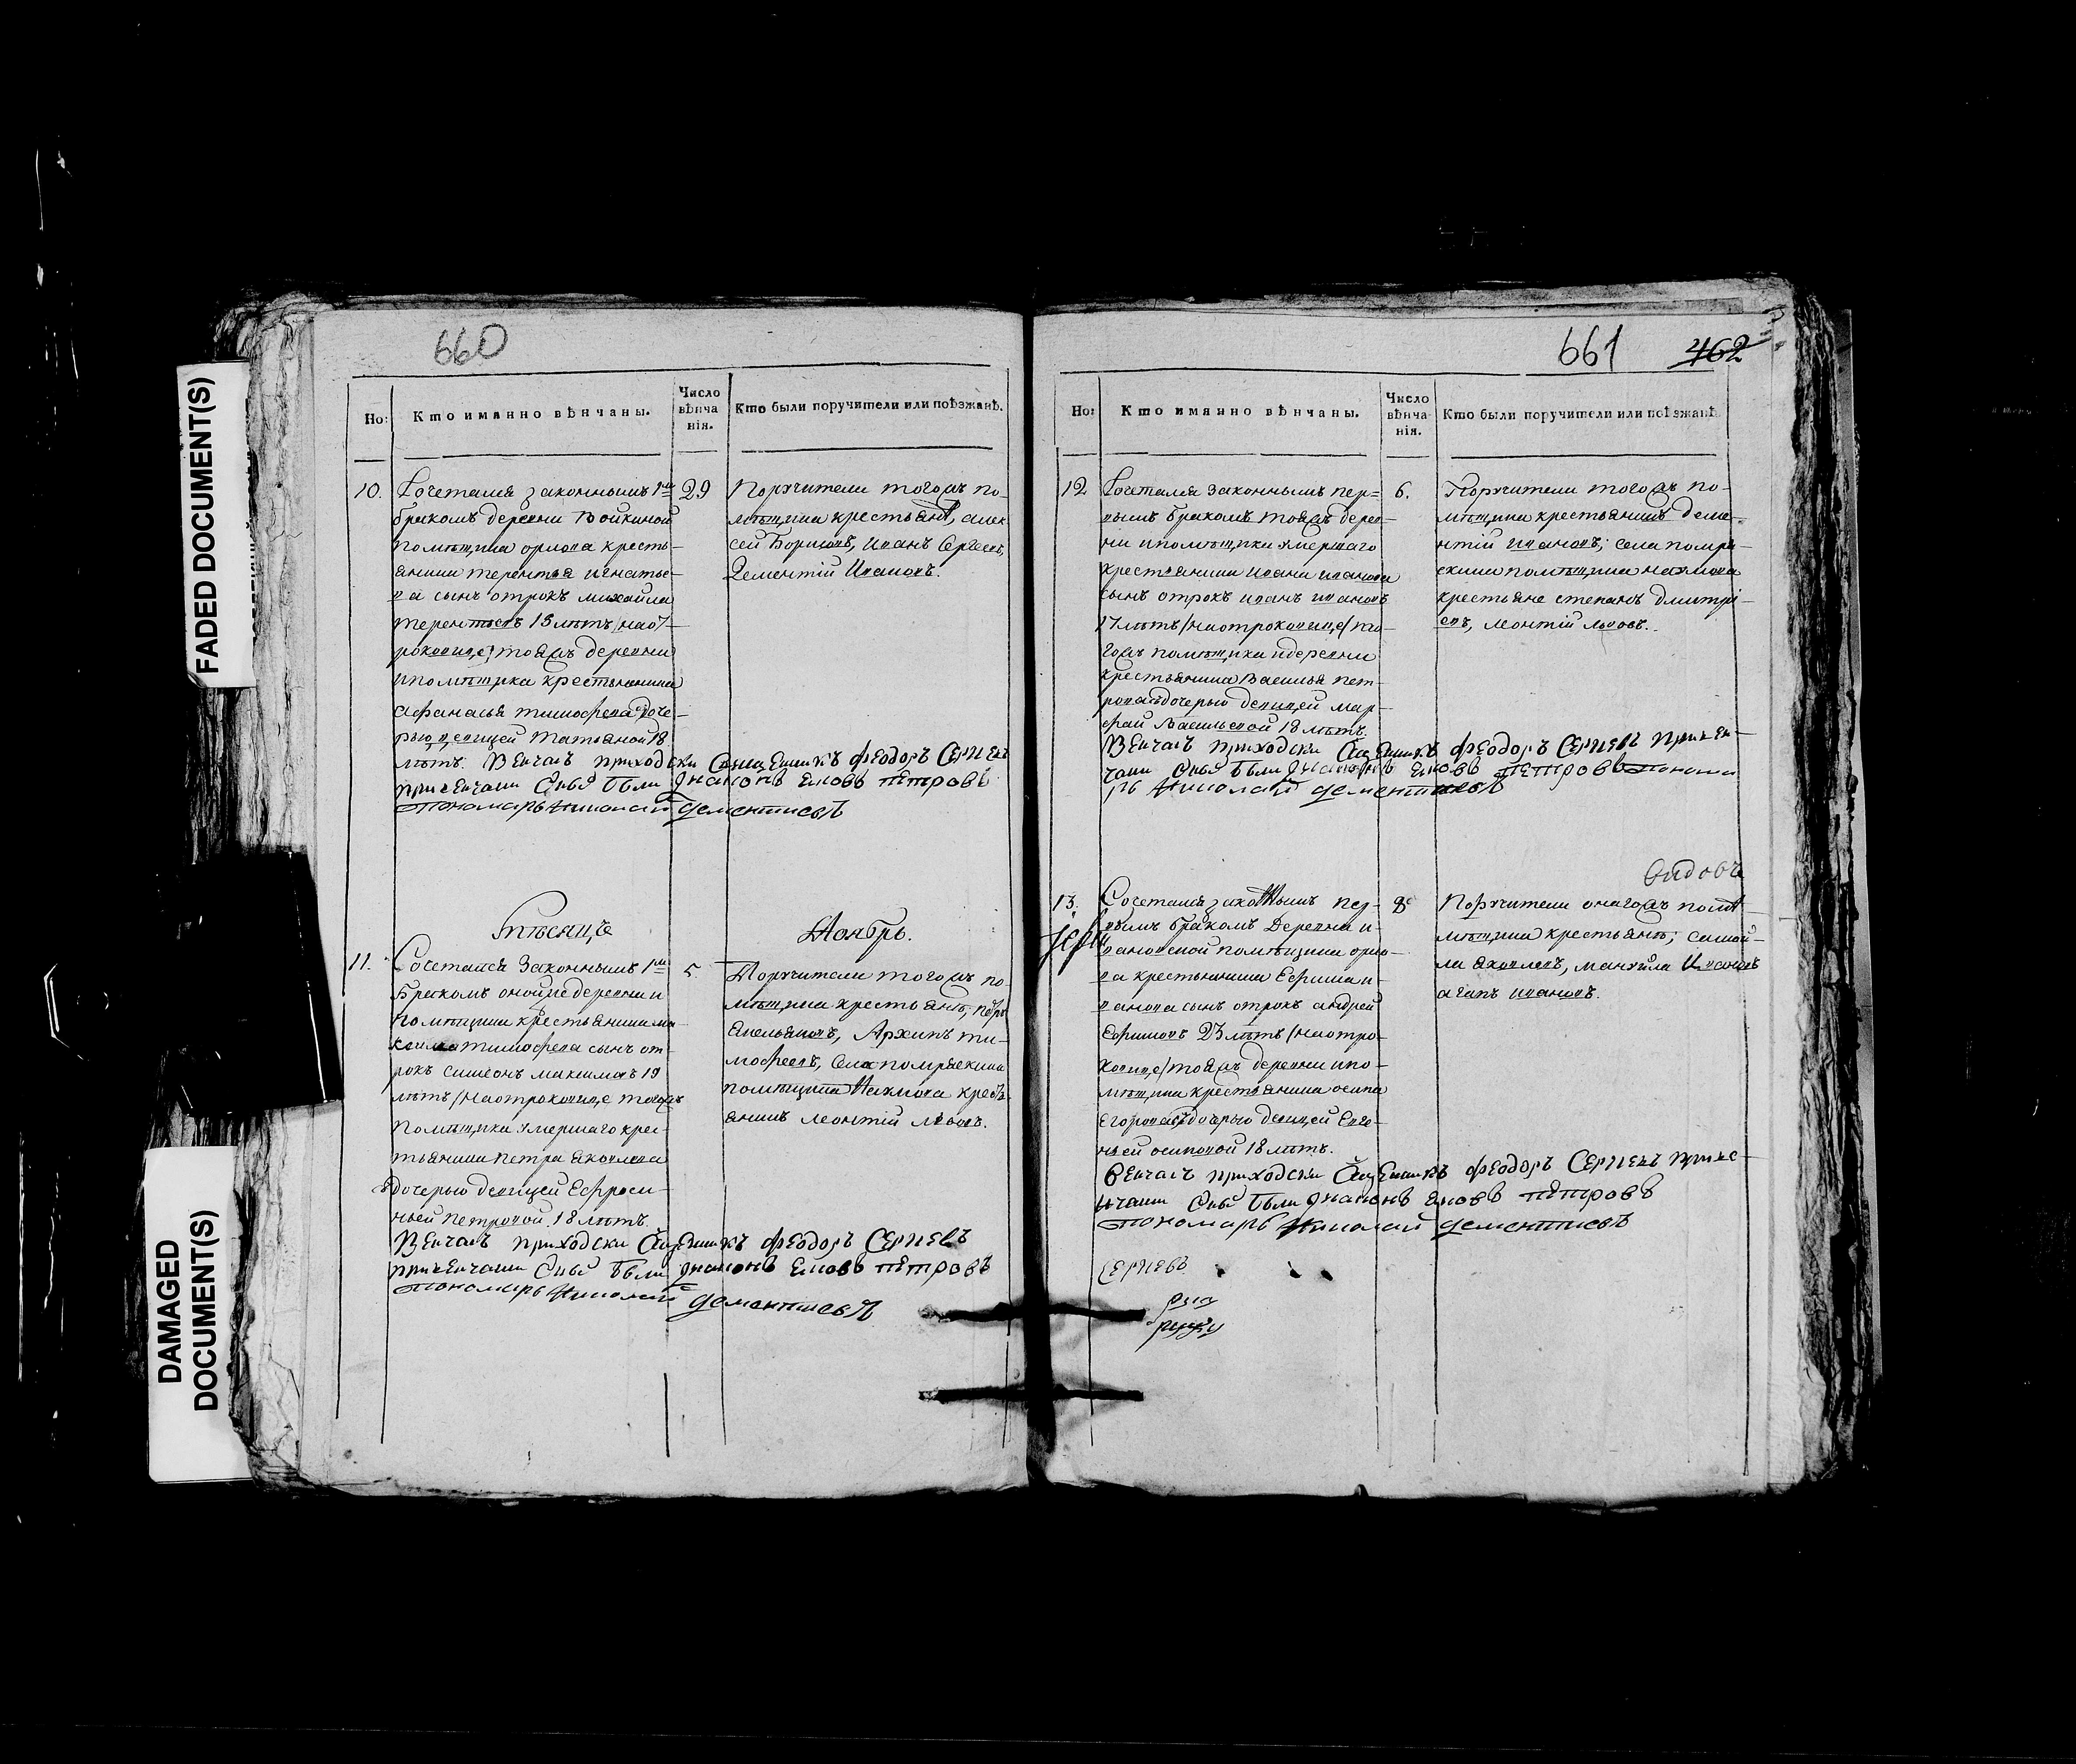 FADED DOCUMENT(S)
DAMAGED
DOCUMENT(S)
660
Но:
Кто имянно вѣнчаны.
Число
вѣнча
нія.
Кто были поручители или поѣзжанѣ.
10.
Сочетался законнымъ 1мъ
бракомъ деревни Войкиной
помѣщика орлова кресть-
янина терентья игнатье-
ва сынъ отрокъ михайла
терентьевъ 15 лѣтъ /наот-
роковице/ тояжъ деревни
ипомѣщика крестьянина
афанасья тимофеева доче-
рью девицей татьяной 18
лѣтъ. Венчалъ приходски Священникъ феодоръ Сергиевъ
при венчани Сњей были дьяконъ Емовъ петровъ
пономарь николай дементиевъ
29
Поручители тогожъ по-
мѣщика крестьянѣ, алек
сей Борисовъ, иванъ Сергеевъ,
Дементій Ивановъ.
Мѣсяцъ
Ноябрь.
11.
Сочетался Законнымъ 1мъ
Бракомъ онойже деревни и
помѣщика крестьянина ма
ксима тимофеева сынъ от-
рокъ симеонъ максимовъ 19
лѣтъ /наотроковице тогожъ
помѣщика умершаго крес-
тьянина петра яковлева
дочерью девицей Ефроси-
ньей петровой 18 лѣтъ.
Венчалъ приходски Священникъ феодоръ Сергиевъ
привенчани были дьяконъ Емовъ петровъ
пономарь николай дементиевъ
5.
Поручители тогожъ по-
мѣщика крестьянѣ, петръ
Емельяновъ, Архипъ ти-
мофеевъ, села помряскина
помѣщика Наумова кресть-
янинъ леонтій львовъ.
661
462
Но:
Кто имянно вѣнчаны.
Число
вѣнча
нія.
Кто были поручители или поѣзжанѣ.
12
Сочетался законнымъ пер-
вымъ бракомъ тояжъ дерев-
ни ипомѣщика умершаго
крестьянина ивана иванова
сынъ отрокъ иванъ ивановъ
17 лѣтъ /наотроковице/ тго-
гожъ помѣщика идеревни
крестьянина Василья пет-
рова дочерью девицей мар-
фай Васильевой 18 лѣтъ.
Венчалъ приходски Священникъ феодоръ Сергиевъ при вен-
чани были дьяконъ Емовъ петровъ понома
рь николай дементиевъ
6.
Поручители тогожъ по-
мѣщика крестьянинъ деме-
нтій ивановъ; села помря-
скина помѣщика наумова
крестьяне степанъ дмитрі-
евъ, леонтій львовъ.
13.
Сочетался законнымъ пер-
вымъ бракомъ Деревни и-
вановской помѣщика орло-
ва крестьянина Ефима и-
ванова сынъ отрокъ андрей
Ефимовъ 23 лѣтъ /наотро-
ковице/ тояжъ деревни ипо-
мѣщика крестьянина осипа
егорова дочерью девицей Евге-
ньей осиповой 18 лѣтъ.
Венчалъ приходски Священникъ феодоръ Сергиевъ приве-
нчани были дьяконъ Емовъ петровъ
пономарь николай дементиевъ
8
Поручители онагожъ
мѣщика крестьянѣ; самой-
ла яковлевъ, мануйла Ивановъ
агапъ ивановъ.
Сергиевъ